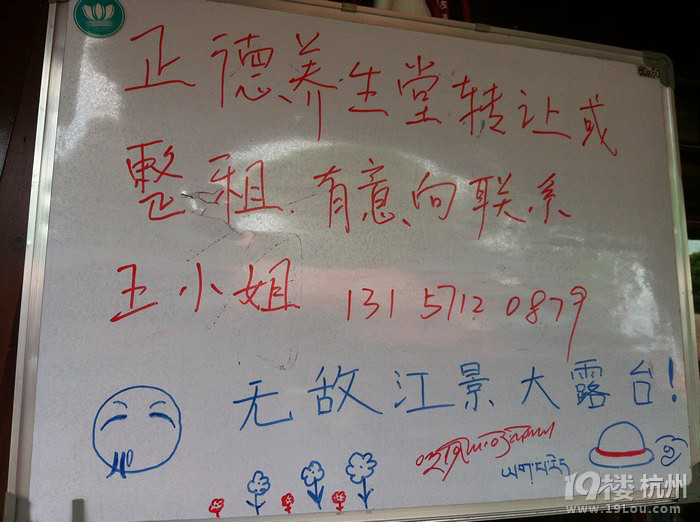 正德养生堂转让或
整租.有意向联系
王小姐 131 5712 0879
无敌江景大露台!
19楼 杭州
www.19Lou.com